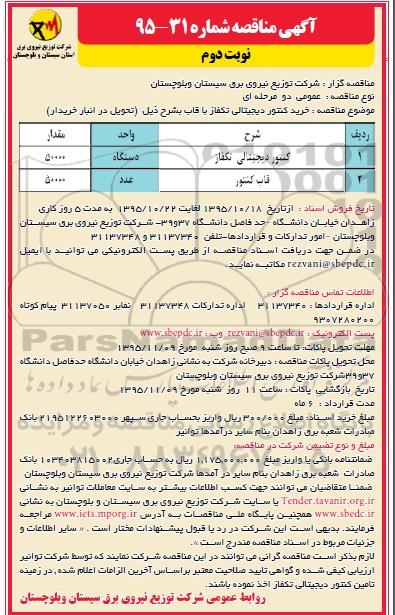 آگهی مناقصه شماره ۳۱-۹۵
نوبت دوم
شرکت توزیع نیروی برق
استان سیستان و بلوچستان
مناقصه گزار : شرکت توزیع نیروی برق سیستان وبلوچستان
نوع مناقصه : عمومی دو مرحله ای
موضوع مناقصه : خرید کنتور دیجیتالی تکفاز با قاب بشرح ذیل (تحویل در انبار خریدار)
ردیف شرح واحد مقدار
۱ کنتور دیجیتالی تکفاز دستگاه ۵۰۰۰۰
۲ قاب کنتور عدد ۵۰۰۰۰
تاریخ فروش اسناد : ازتاریخ ۱۳۹۵/۱۰/۱۸ لغایت ۱۳۹۵/۱۰/۲۲ به مدت ۵ روز کاری
زاهدان خیابان دانشگاه -حد فاصل دانشگاه ۳۷و۳۹- شرکت توزیع نیروی برق سیستان
وبلوچستان -امور تدارکات و قراردادها-تلفن ۳۱۱۳۷۳۴۰ و ۳۱۱۳۷۳۴۸
در ضمن جهت دریافت اسناد مناقصه از طریق پست الکترونیکی می توانید با ایمیل
rezvani@sbepdc.ir مکاتبه نمایید.
اطلاعات تماس مناقصه گزار :
اداره قراردادها : ۳۱۱۳۷۳۴۰ اداره تدارکات ۳۱۱۳۷۳۴۸ نمابر ۳۱۱۳۷۰۵۰ پیام کوتاه
۹۳۰۷۲۸۰۲۰۰
پست الکترونیک : rezvani@sbepdc.ir وب : www.sbepdc.ir
مهلت تحویل پاکات: تا ساعت ۹ صبح روز شنبه مورخ ۱۳۹۵/۱۱/۰۹
محل تحویل پاکات مناقصه : دبیرخانه شرکت به نشانی زاهدان خیابان دانشگاه حدفاصل دانشگاه
۳۷و۳۹شرکت توزیع نیروی برق سیستان وبلوچستان
تاریخ بازگشایی پاکات : ساعت ۱۱ روز شنبه مورخ ۱۳۹۵/۱۱/۰۹
مدت قرارداد : ۶ ماه
مبلغ خرید اسناد: مبلغ ۳۰۰/۰۰۰ ریال واریز بحساب جاری سپهر ۲۱۹۵۱۲۲۶۰۳۰۰۰ بانک
صادرات شعبه برق زاهدان بنام سایر درآمدها توانیر
مبلغ و نوع تضمین شرکت در مناقصه:
ضمانتنامه بانکی یا واریز مبلغ ۱,۱۷۵,۰۰۰,۰۰۰ ریال به حساب جاری ۱۰۳۴۰۳۸۱۵۰۰۲ بانک
صادرات شعبه برق زاهدان بنام سایر در آمدها شرکت توزیع نیروی برق سیستان وبلوچستان
ضمنا متقاضیان می توانند جهت کسب اطلاعات بیشتر به سایت معاملات توانیر به نشانی
Tender.tavanir.org.ir یا سایت شرکت توزیع نیروی برق سیستان و بلوچستان به نشانی
www.sbedc.ir همچنین پایگاه ملی مناقصات به آدرس www.iets.mporg.ir مراجعه
فرمایند. بدیهی است این شرکت در رد یا قبول پیشنهادات مختار است . « سایر اطلاعات و
جزئیات مربوط در اسناد مناقصه مندرج است ».
لازم بذکر است مناقصه گرانی می توانند در این مناقصه شرکت نمایند که توسط شرکت توانیر
ارزیابی کیفی شده و گواهی تایید صلاحیت معتبر براساس آخرین الزامات اعلام شده، در زمینه
تامین کنتور دیجیتالی تکفاز اخذ نموده باشند.
روابط عمومی شرکت توزیع نیروی برق سیستان وبلوچستان